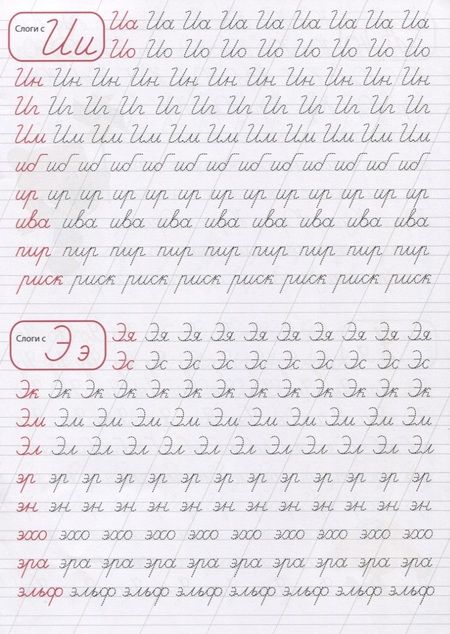 Слоги с И и
Иа Иа Иа Иа Иа Иа Иа Иа Иа
Ио Ио Ио Ио Ио Ио Ио Ио Ио
Ин Ин Ин Ин Ин Ин Ин Ин Ин Ин Ин
Иг Иг Иг Иг Иг Иг Иг Иг Иг Иг Иг Иг
Им Им Им Им Им Им Им Им Им Им Им
иб иб иб иб иб иб иб иб иб иб иб иб
ир ир ир ир ир ир ир ир ир ир ир ир
ива ива ива ива ива ива ива ива ива
пир пир пир пир пир пир пир пир пир
риск риск риск риск риск риск риск риск
Слоги с Э э
Эя Эя Эя Эя Эя Эя Эя Эя Эя Эя
Эс Эс Эс Эс Эс Эс Эс Эс Эс Эс
Эк Эк Эк Эк Эк Эк Эк Эк Эк Эк Эк Эк
Эм Эм Эм Эм Эм Эм Эм Эм Эм Эм
Эл Эл Эл Эл Эл Эл Эл Эл Эл Эл Эл
эр эр эр эр эр эр эр эр эр эр эр эр
эн эн эн эн эн эн эн эн эн эн эн
эхо эхо эхо эхо эхо эхо эхо эхо
эра эра эра эра эра эра эра эра
эльф эльф эльф эльф эльф эльф эльф